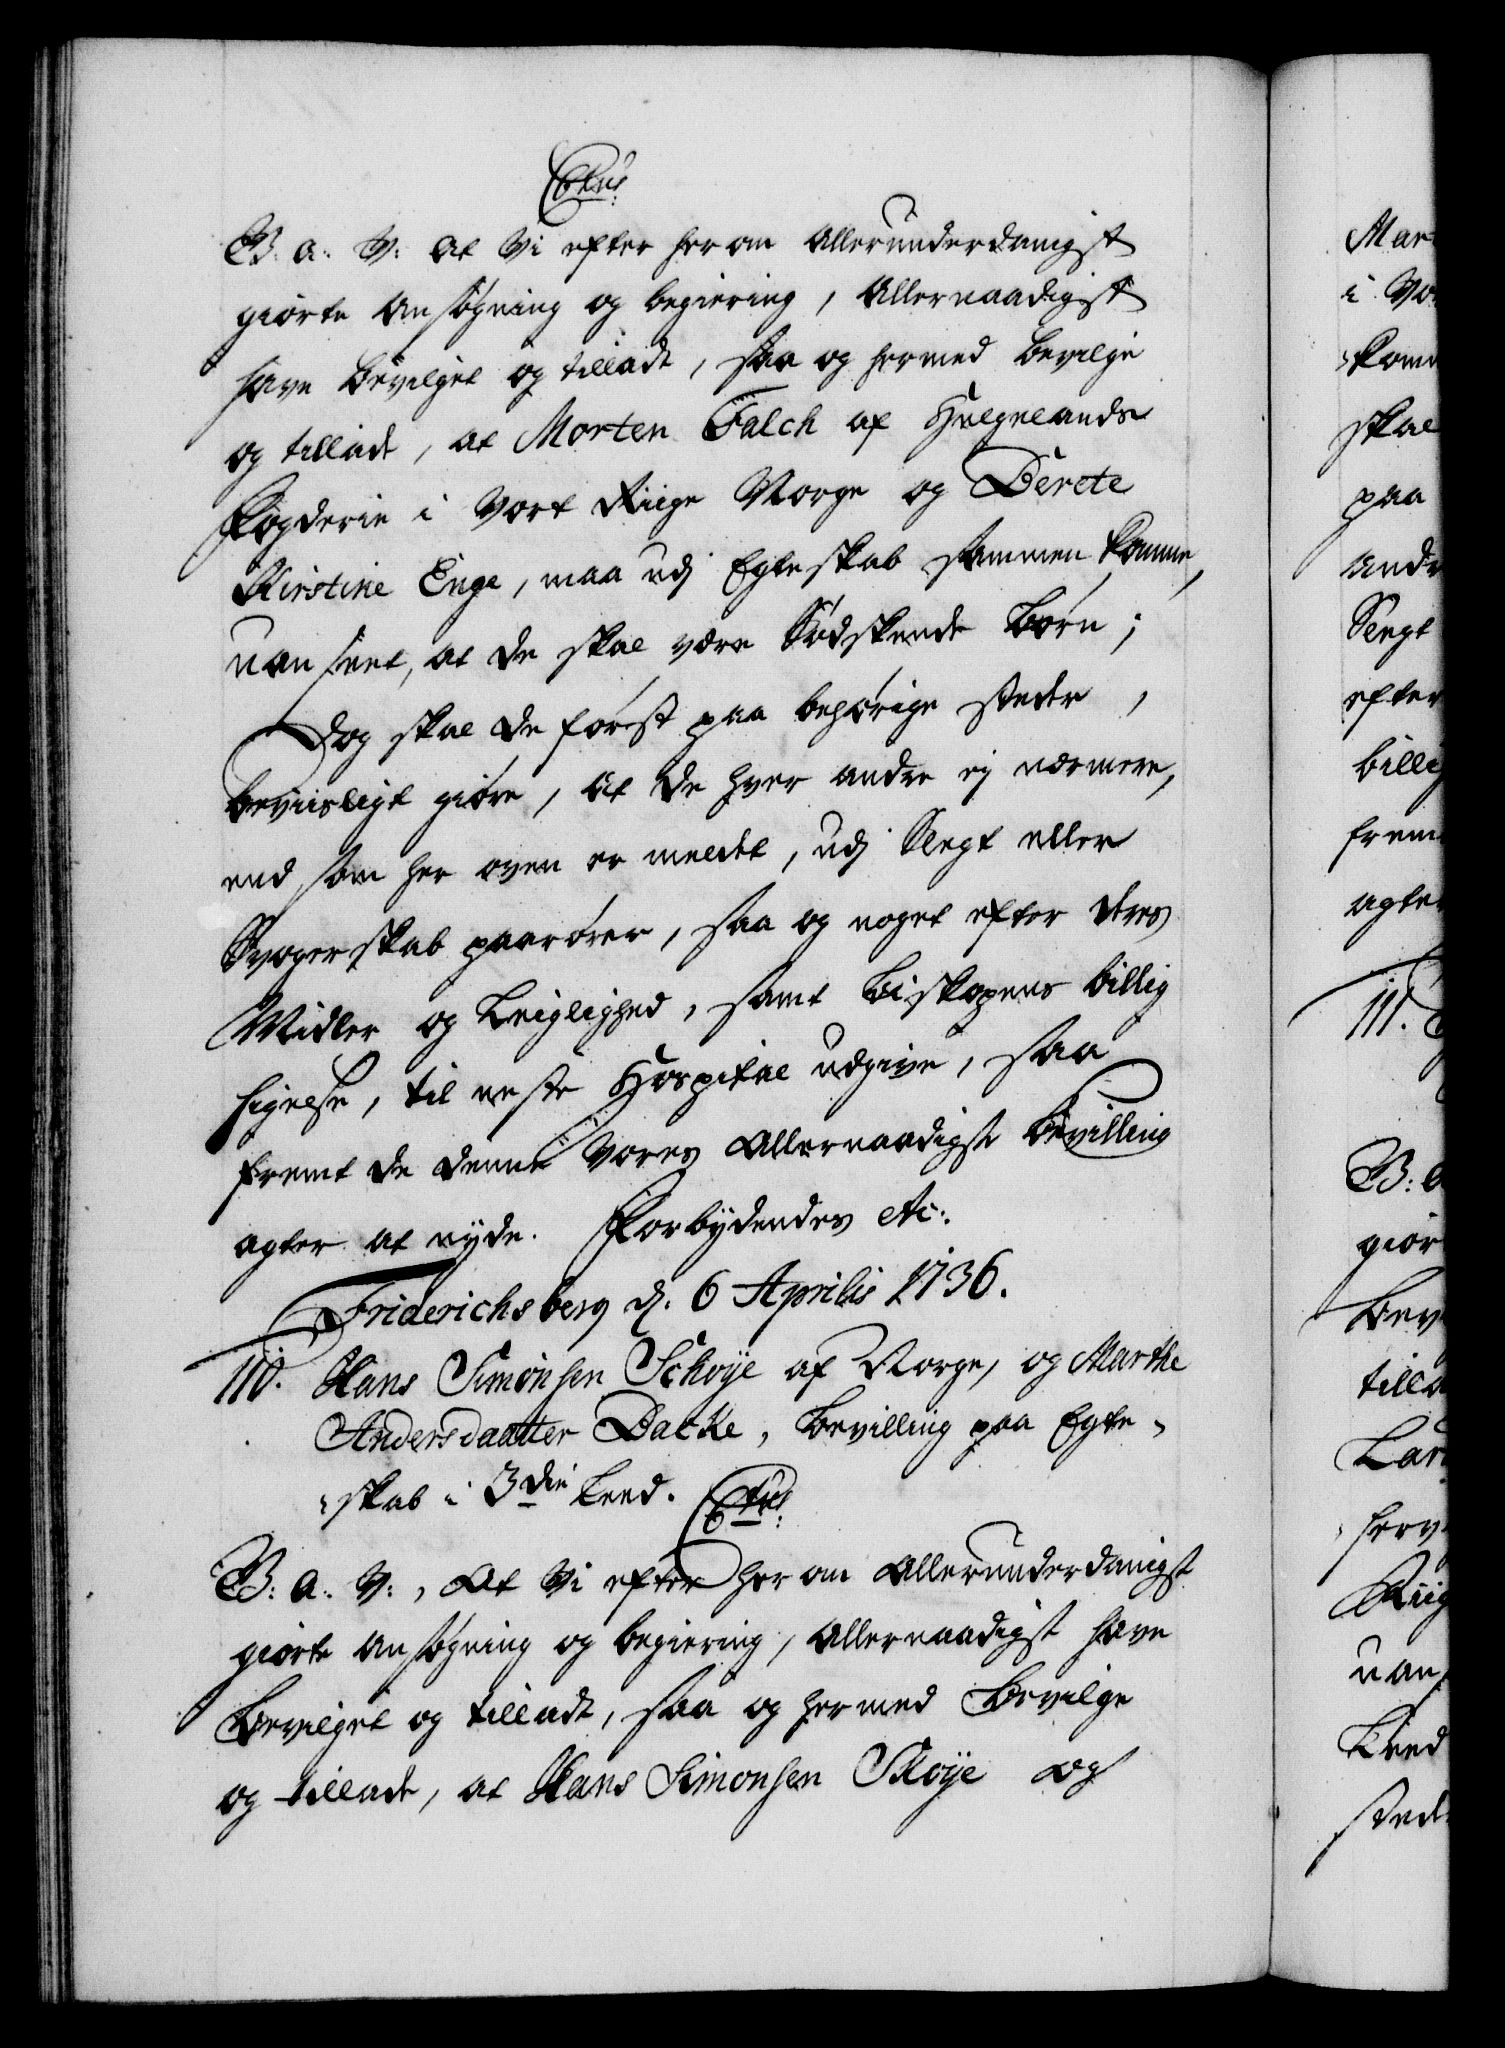 Ctus:
B: a: V: At Vi efter her om Allerunderdanigst
giorte Ansøgning og begiering, Allernaadigst
have bevilget og tilladt, saa og hermed bevilge
og tillade, at Morten Falch af Helgelands
Fogderie i Vort Riige Norge og Berete
Kirstine Enge, maa udj Egteskab sammen komme,
uanseet, at de skal være Sødskende Børn;
Dog skal de først paa behørige steder,
beviisligt giøre, at de hver andre ej nærmere,
end som her oven er meldt, udj Slegt eller
Svogerskab paarører, saa og noget efter deres
Midler og Leiglighed, samt Biskopens billig
sigelse, til neste Hospital udgive, saa
fremt de denne Vores Allernaadigste Bevilling
agter at nyde. Forbydendes etc:.
Friderichsberg d: 6 Aprilis 1736.
110. Hans Simonsen Schøye af Norge, og Marthe
Andersdaatter Backe, Bevilling paa Egte-
skab i 3die Leed. Ctus:
B: a: V:, At Vi efter her om Allerunderdanigst
giorte Ansøgning og begiering, Allernaadigst have
Bevilget og tilladt, saa og hermed Bevilge
og tillade, at Hans Simonsen Skøye og
Mar
i Vo
kom
skal
paa
andr
Slegt
efter
billig
frem
agte
111.
B: a
giør
Bev
tilla
Lar
herv
Riig
uan
Leed
sted